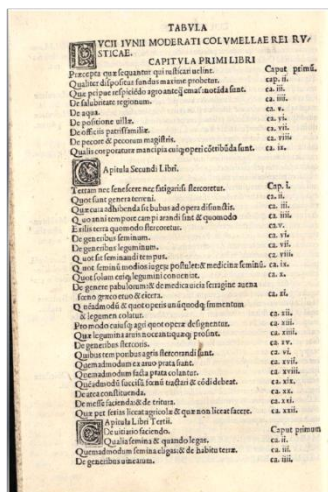 TABVLA
LVCII IVNII MODERATI COLVMELLAE REI RV-
STICAE.
CAPITVLA PRIMI LIBRI
Præcepta quæ sequantur qui rusticari uelint. Caput primũ.
Qualiter dispositus fundus maxime probetur. cap. ii.
Quæ præcipue inspiciẽdo agro anteq̃ emas notãda sunt. ca. iii.
De salubritate regionum. ca. iiii.
De aqua. ca. v.
De positione uillæ. ca. vi.
De officiis patrisfamiliæ. ca. vii.
De pecore & pecorum magistris. ca. viii
Qualis corporaturæ mancipia cuiq; operi cõtribuẽda sunt. ca. ix.
CApitula Secundi Libri.
Terram nec senescere nec fatigari si stercoretur. Cap. i.
Quot sunt genera terreni. ca. ii.
Quæ cura adhibenda sit bubus ad opera disiunctis. ca. iii.
Quo anni tempore campi arandi sint & quomodo ca. iiii.
Exilis terra quomodo stercoretur. ca. v.
De generibus seminum. ca. vi.
De generibus leguminum. ca. vii.
Quot sit seminandi tempus. ca. viii.
Quot seminũ modios iugerũ postulet & medicinæ seminũ. ca. ix.
Quot solum cuiq; legumini conueniat. ca. x.
De genere pabulorum & de medica uicia farragine auena
foeno græco eruo & cicera. ca. xi.
Quẽadmodũ & quot operis unũquodq; frumentum
& legumen colatur. ca. xii.
Pro modo cuiusq; agri quot operæ designentur. ca. xiii.
Quæ legumina aruis noceant quæq; prosint. ca. xiiii.
De generibus stercoris. ca. xv.
Quibus temporibus agri stercorandi sunt. ca. vi.
Quemadmodum ex aruo prata fiant. ca. xvii.
Quemadmodum facta prata colantur. ca. xviii.
Quẽadmodũ succisũ fœnũ tractari & cõdi debeat. ca. xix.
De area constituenda. ca. xx.
De messe facienda & de tritura. ca. xxi.
Quæ per ferias liceat agricolæ & quæ non liceat facere. ca. xxii.
CApitula Libri Tertii.
De uitiario faciendo. Caput primum
Qualia semina & quando legas. ca. ii.
Quemadmodum semina eligas: & de habitu terræ. ca. iii.
De generibus uinearum. ca. iiii.